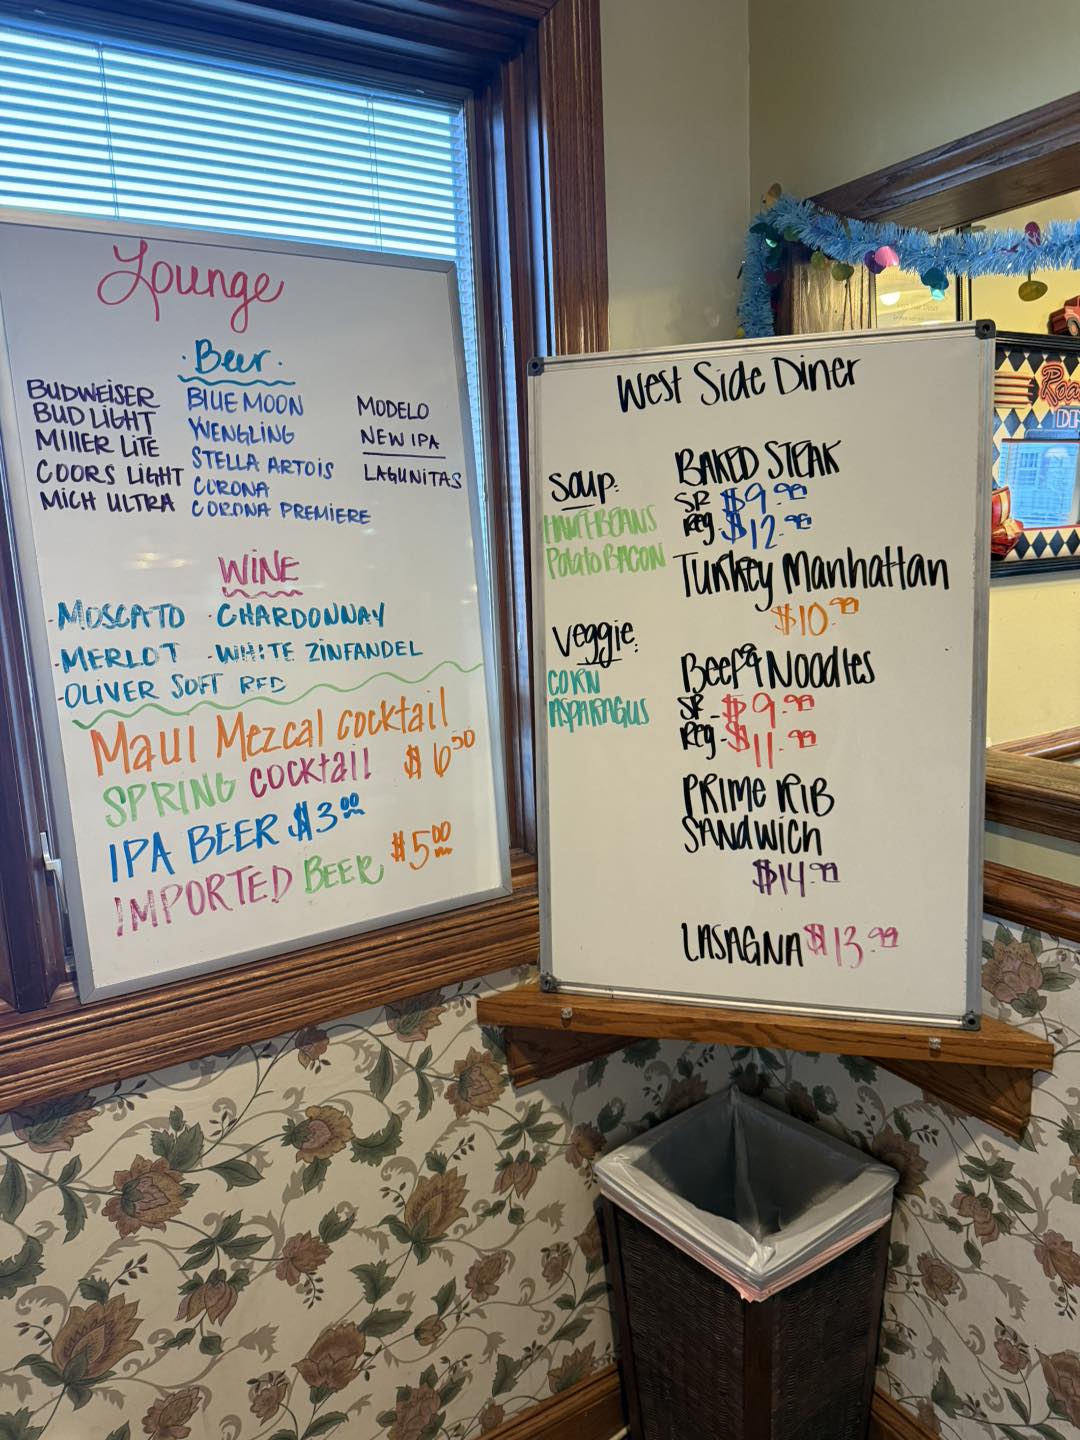 Lounge
Beer
BUDWEISER
BUD LIGHT
MILLER LITE
COORS LIGHT
MICH ULTRA
BLUE MOON
YENGLING
STELLA ARTOIS
CORONA
CORONA PREMIERE
MODELO
NEW IPA
LAGUNITAS
WINE
- MOSCATO - CHARDONNAY
- MERLOT - WHITE ZINFANDEL
- OLIVER SOFT RED
Maui Mezcal cocktail
SPRING cocktail $6.50
IPA BEER $3.00
IMPORTED BEER $5.00
West Side Diner
Soup:
HAM & BEANS
Potato BACON
Veggie:
CORN
ASPARAGUS
BAKED STEAK
SR $9.99
Reg $12.99
Turkey Manhattan
$10.99
Beef & Noodles
SR - $9.99
Reg - $11.99
PRIME RIB
SANDWICH
$14.99
LASAGNA $13.99